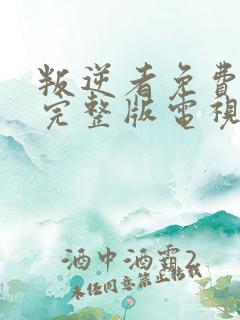 叛逆者免費
完整版電視
酒中酒霸2
未经同意禁止转载